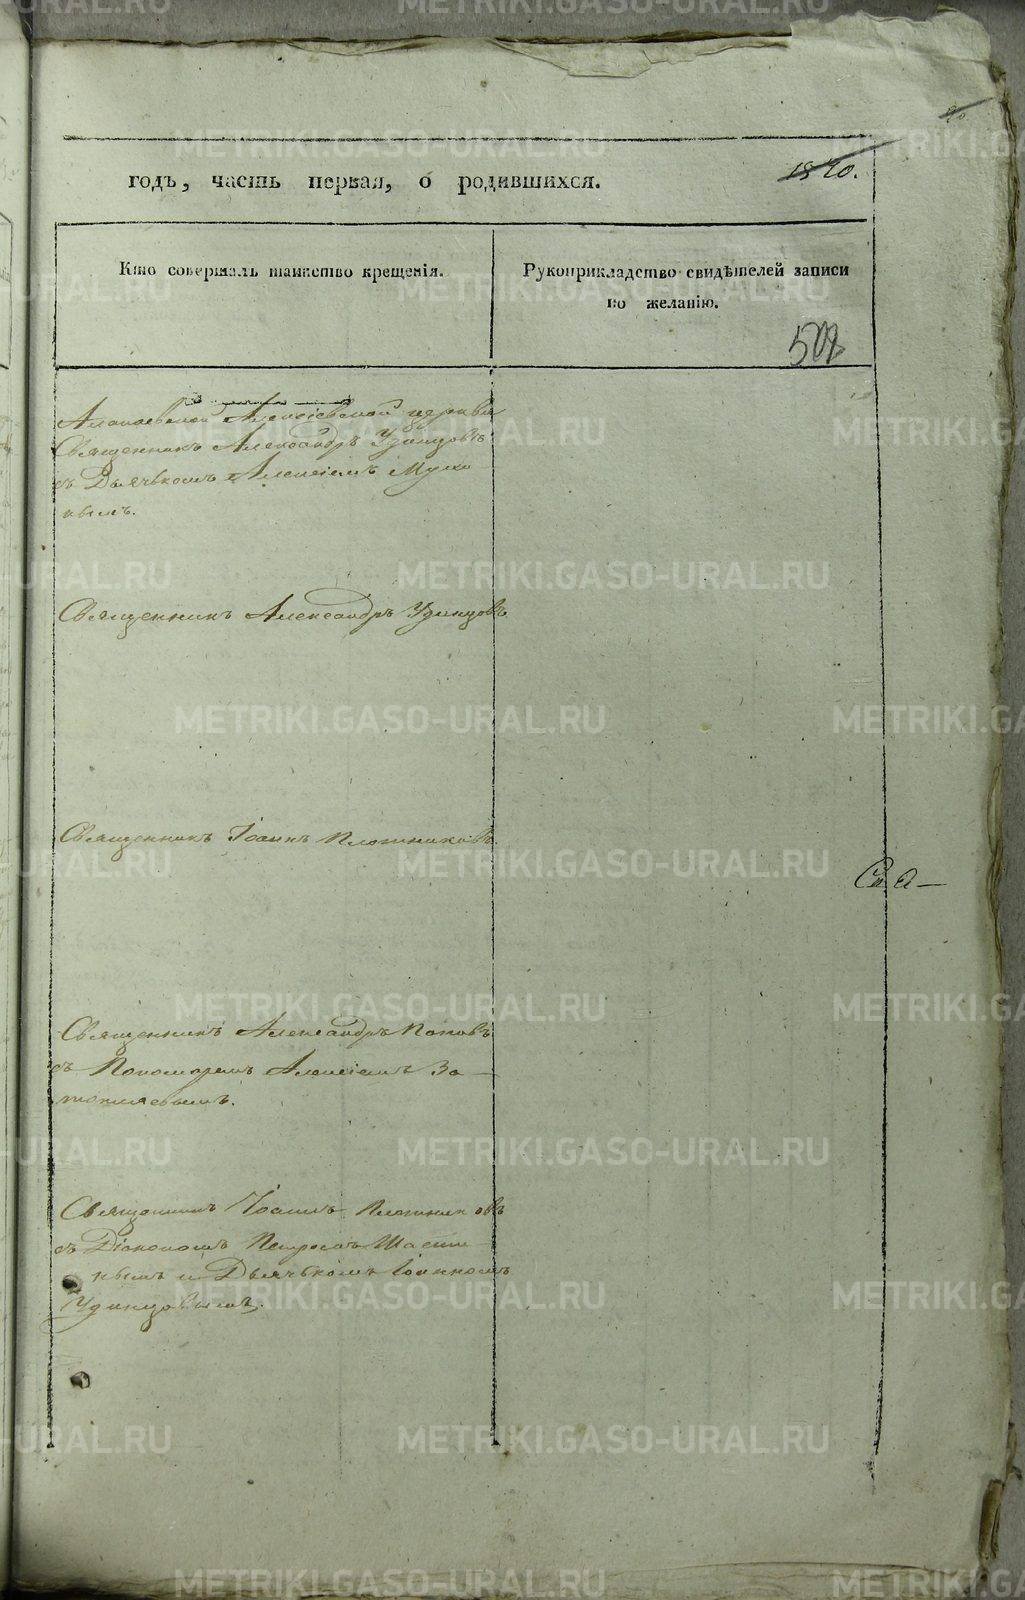 годъ, часть первая, о родившихся.
1840.
Кто совершалъ таинство крещенія.
Рукоприкладство свидѣтелей записи
по желанію.
502
Алапаевской Алексіевской церкви
Священникъ Александръ Удинцовъ
съ Дьячькомъ Алексіемъ Муки
нымъ.
Священникъ Александръ Удинцовъ
Священникъ Іоаннъ Плотниковъ.
Священникъ Александръ Поповъ
съ Пономаремъ Алексіемъ За
топляевымъ.
Священникъ Іоаннъ Плотниковъ
съ Діакономъ Петромъ
нымъ и Дьячькомъ Іоанномъ
Удинцовымъ.
METRIKI.GASO-URAL.RU